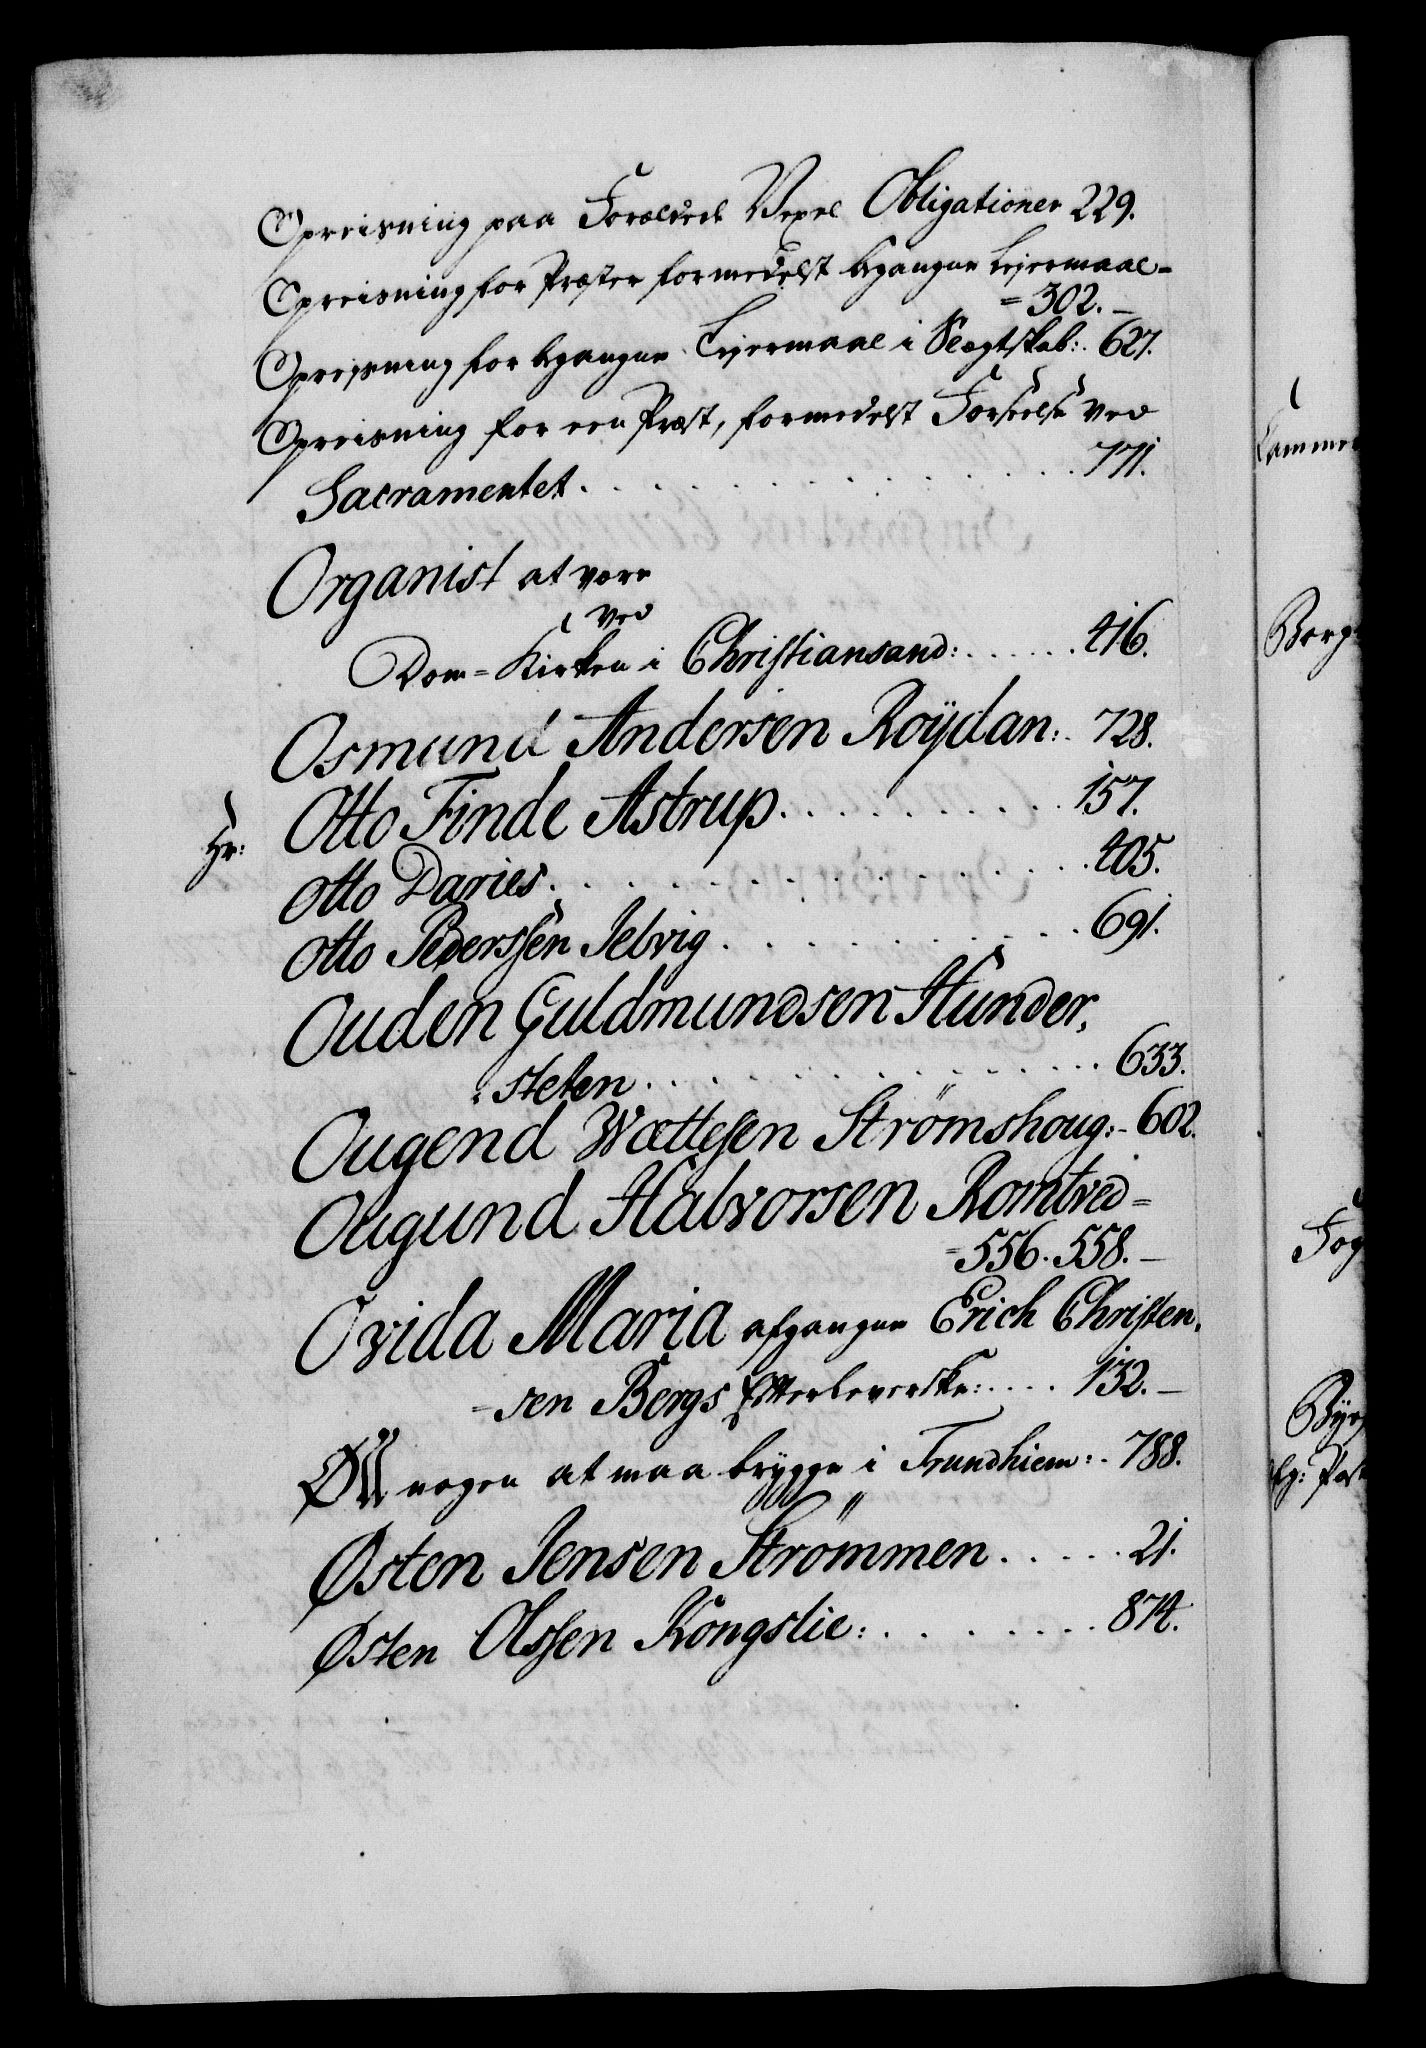 Opreisning paa Forældede Vexel Obligationer 229.
Opreisning for Præster formedelst begangne Lejermaal=
=302.-
Opreisning for begangne Lejermaal i Slegtskab: 627.
Opreisning for een Præst, formedelst Forseelse ved
Sacramentet. . . . . . . . . . . . . 771.
Organist at være
ved
Dom=Kirken i Christiansand: . . . . . . 416.
Osmund Andersen Roÿdan: . 728.
Otto Finde Astrup. . . . . . . . . 157.
Hr: Otto Daries. . . . . . . . . . . . . . 405.
Otto Pederssen Jelvig . . . . . . . . . . 691.
Ouden Guldmundsen Hunder,
steten . . . . . . . . . . . . . . . 633.
Ougend Wættesen Strömshoug: - 602.
Ougund Halvorsen Romtved=
=556. 558. -
Ovida Maria afgangne Erich Christen,
=sen Bergs Efterleverske: . . . . 132. -
Øll nogen at maa brygge i Trundhiem: . 788.
Østen Jensen Strömmen . . . . . 21.
Østen Olssen Kongslie: . . . . . . . . 874.
Cammer
Borg
Fog
Byes